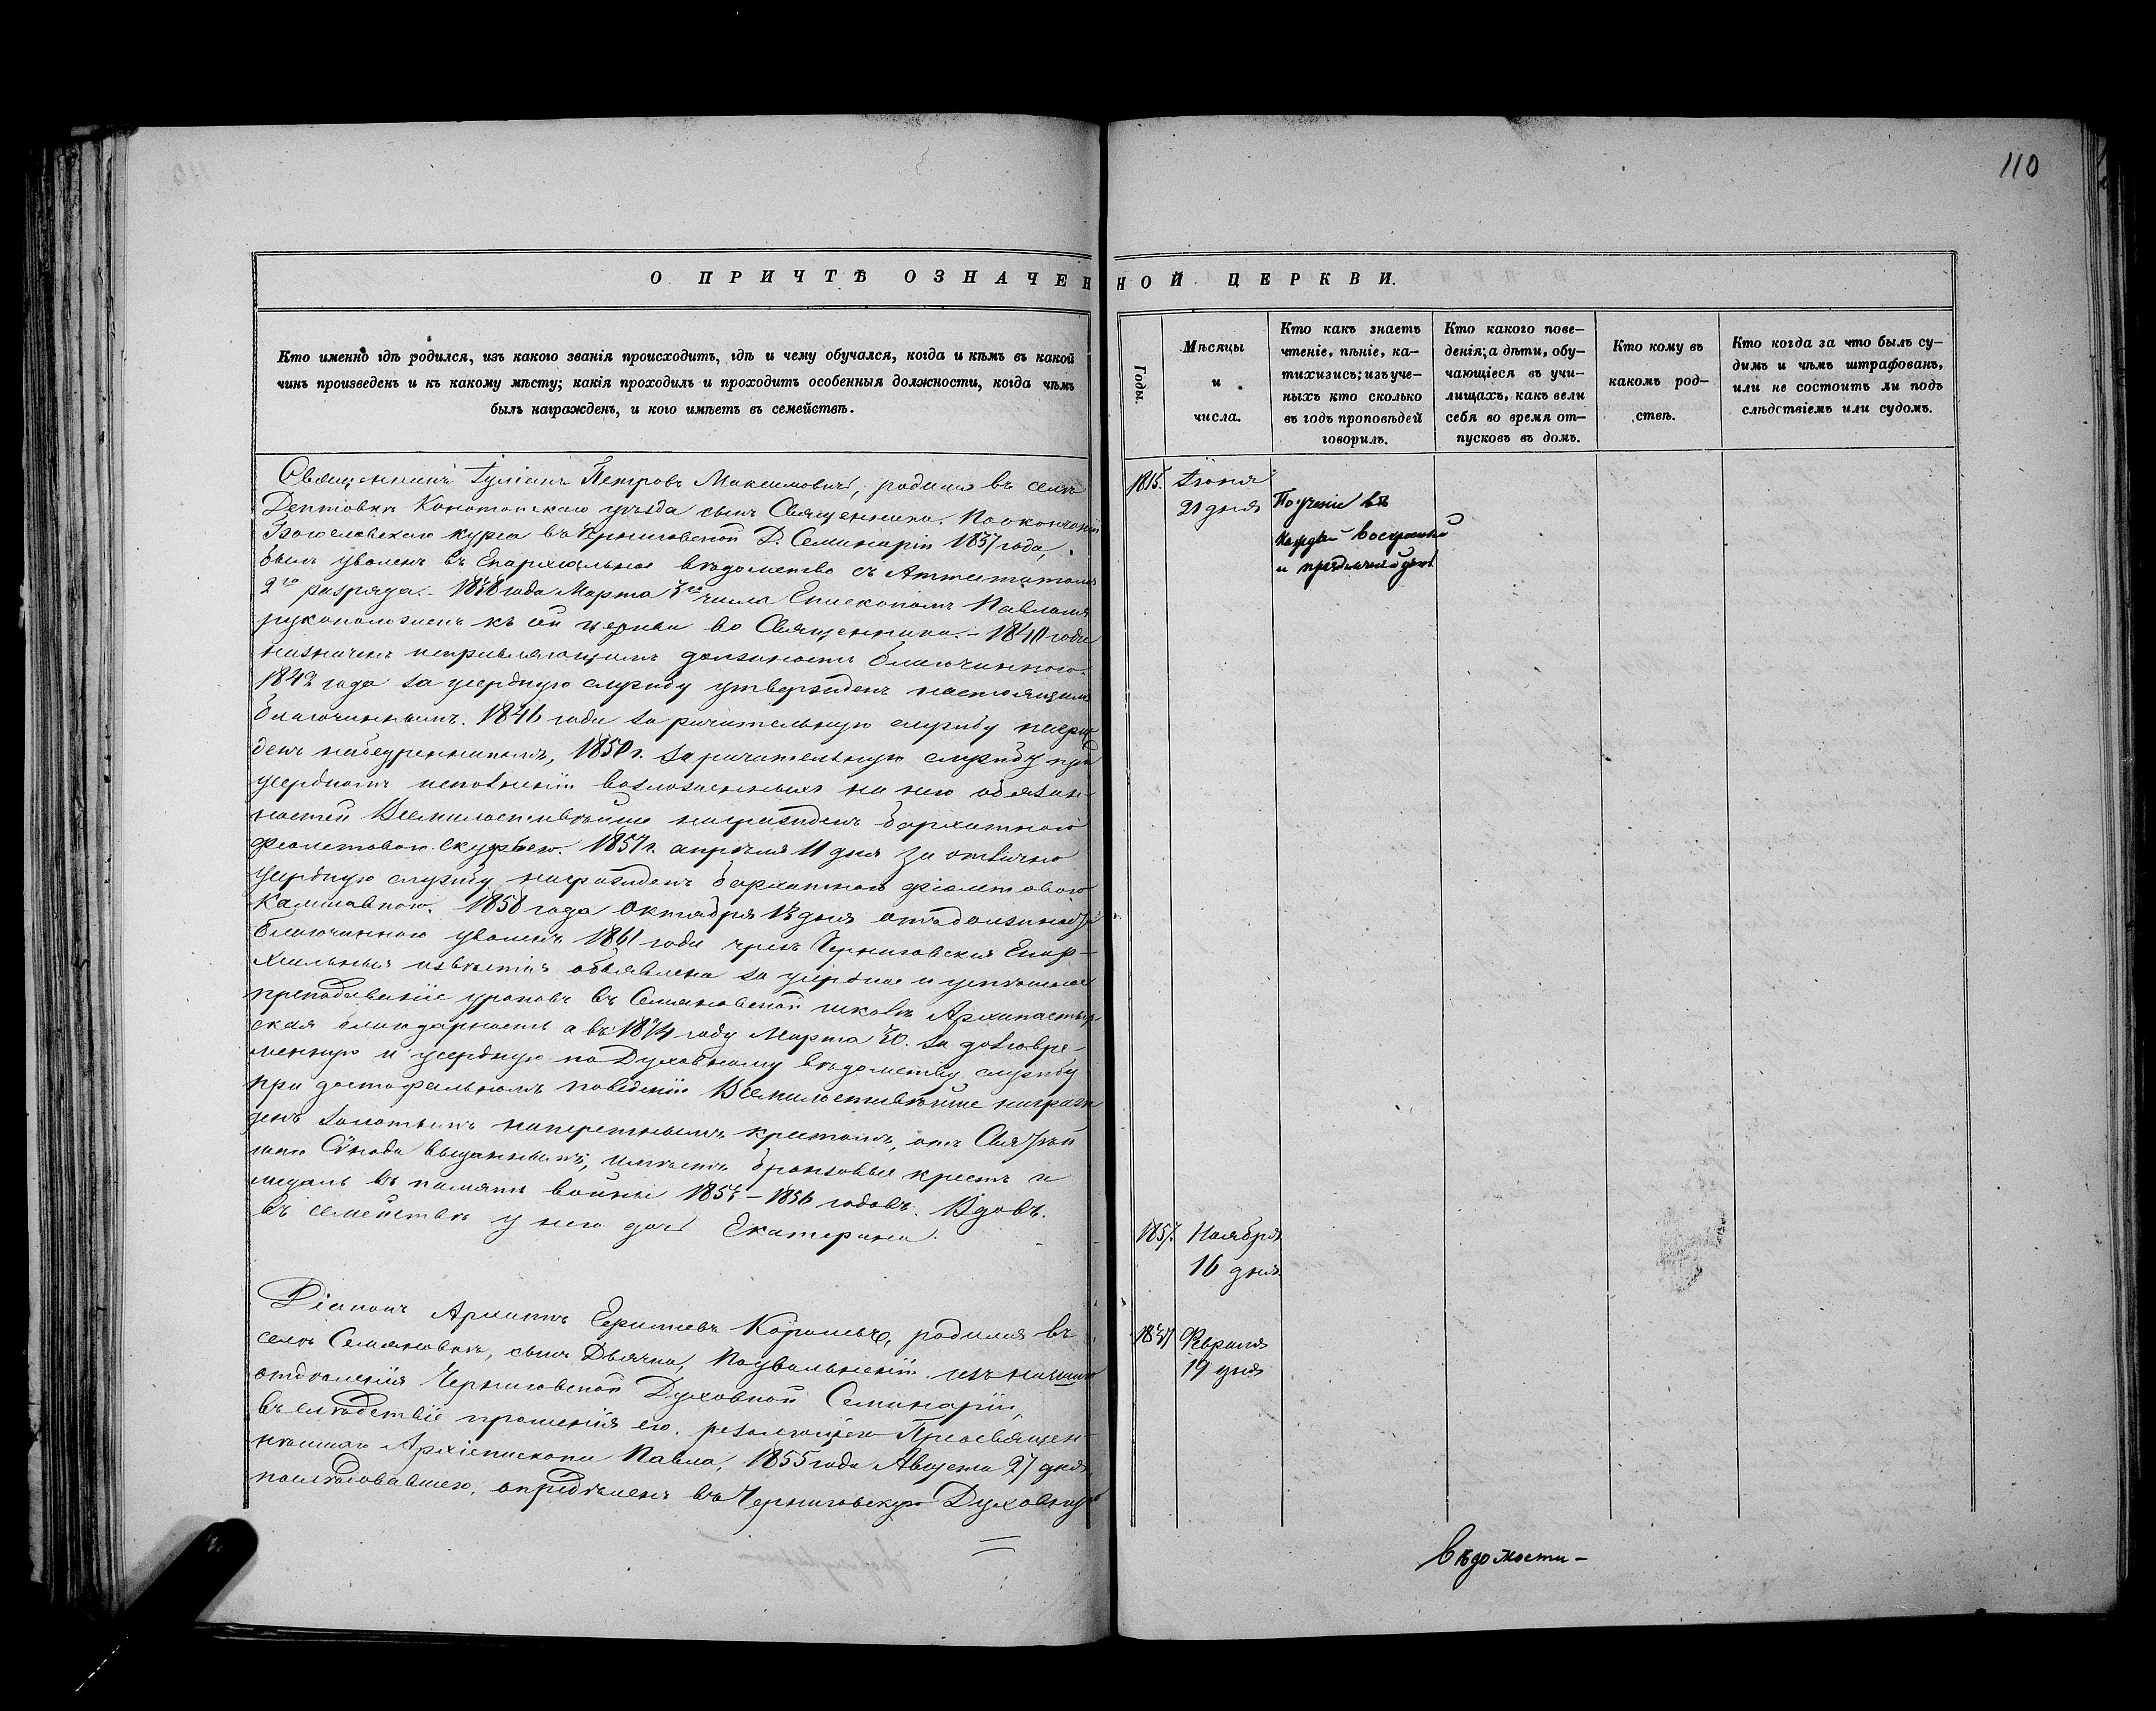 110
О ПРИЧТѢ ОЗНАЧЕННОЙ ЦЕРКВИ.
Кто именно гдѣ родился, изъ какого званія происходитъ, гдѣ и чему обучался, когда и кѣмъ въ какой
чинъ произведенъ и къ какому мѣсту; какія проходилъ и проходитъ особенныя должности, когда чѣмъ
былъ награжденъ, и кого имѣетъ въ семействѣ.
Священникъ Іуліанъ Петровъ Максимовичъ, родился въ селѣ
Дептовкѣ Конотопскаго уѣзда сынъ Священника. По окончаніи
Богословскаго курса въ Черниговской Д. Семинаріи 1837 года,
былъ уволенъ въ Епархіальное вѣдомство съ Аттестатомъ
2го разряда. – 1838 года Марта числа Епископомъ Павломъ
рукоположенъ къ сей церкви во Священника. – 1840 года
назначенъ исправляющимъ должность благочиннаго.
1842 года за усердную службу утвержденъ настоящимъ
благочиннымъ. 1846 года за рачительную службу награж-
денъ набедренникомъ, 1850 г. за рачительную службу при
усердномъ исполненіи возложенныхъ на него обязан-
ностей Всемилостивѣйше награжденъ бархатною
фіолетовою скуфьею. 1857 г. апрѣля 11 дня за отлично
усердную службу награжденъ бархатною фіолетовою
Камилавкою. 1858 года Октября 13 дня отъ должности
благочиннаго уволенъ 1861 года чрезъ Черниговскія Епар-
хіальныя извѣстія объявлена за усердное и успѣшное
преподаваніе уроковъ въ Семяновской школѣ Архипастыр-
ская благодарность а въ 1874 году Марта 30. за долговре-
менную и усердную по Духовному вѣдомству службу
при достохвальномъ поведеніи Всемилостивѣйше награж
денъ золотымъ наперснымъ крестомъ, отъ Святѣй
шаго Сѵнода выданнымъ, имѣетъ бронзовые крестъ и
медаль въ память войны 1853–1856 годовъ. Вдовъ.
Въ семействѣ у него дочь Екатерина.
Діаконъ Архиппъ Королевъ, родился въ
селѣ Семяновкѣ, сынъ Дьячка, по увольненіи изъ низшаго
отдѣленія Черниговской Духовной Семинаріи,
въ слѣдствіе прошенія его, резолюціею Преосвящен-
нѣйшаго Архіепископа Павла, 1855 года Августа 27 дня
послѣдовавшею, опредѣленъ въ Черниговскую Духовную
Годы.
Мѣсяцы
и
числа.
Кто какъ знаетъ
чтеніе, пѣніе, ка-
тихизисъ; изъ уче-
ныхъ кто сколько
въ годъ проповѣдей
говорилъ.
Кто какого пове-
денія; а дѣти, обу-
чающіеся въ учи-
лищахъ, какъ вели
себя во время от-
пусковъ въ домъ.
Кто кому въ
какомъ род-
ствѣ.
Кто когда за что былъ су-
димъ и чѣмъ штрафованъ,
или не состоитъ ли подъ
слѣдствіемъ или судомъ.
1815. Іюня
21 дня
Поученіе въ
каждый воскресный
и праздничный день
1857. Ноября
16 дня.
1837 Февраля
19 дня
Вѣдомости –